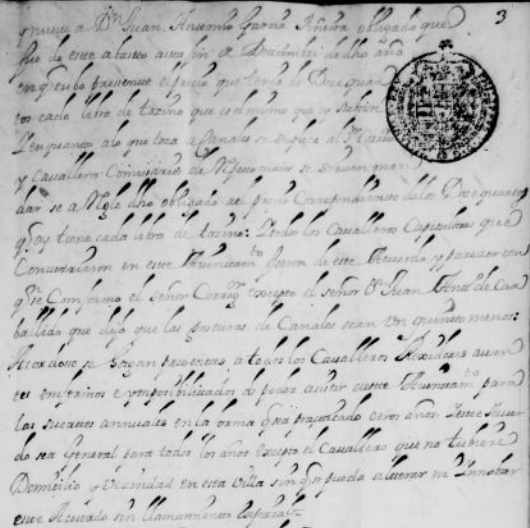 y nueve a Dn Juan Antonio Garzia obligado que
fue de este abasto asta fin de Diziembre de dho año
en que ubo presente el precio que tenia de Doce quar
tos cada libra de tozino que es el mismo que oy
En quanto a lo que toca a se suplica al Sr
y Cavallero Comissario de se sirvan man
dar se a dho obligado al precio Correspondiente de los Doce quartos
q oy tiene cada libra de tozino: todos los Cavalleros Capitulares que
Concurrieron en este Aiuntamto fueron de este Acuerdo y parecer con
qn se Conformo el señor Corregor excepto el señor Dn Juan de Car
ballido que dijo que las posturas de Canales sean Un quarto menos:
Acordose se hagan presentes a todos los Cavalleros Rexidores ausen
tes enfermos e ymposibilitados de poder asistir a este Aiuntamto para
las suertes annuales en la forma q se a practicado otros años: y este Acuer
do sea General para todos los años excepto el Cavallero que no tubiere
Domicilio y Vezindad en esta Villa sin q se pueda alterar ni Innobar
este Acuerdo sin llamamiento especial
3